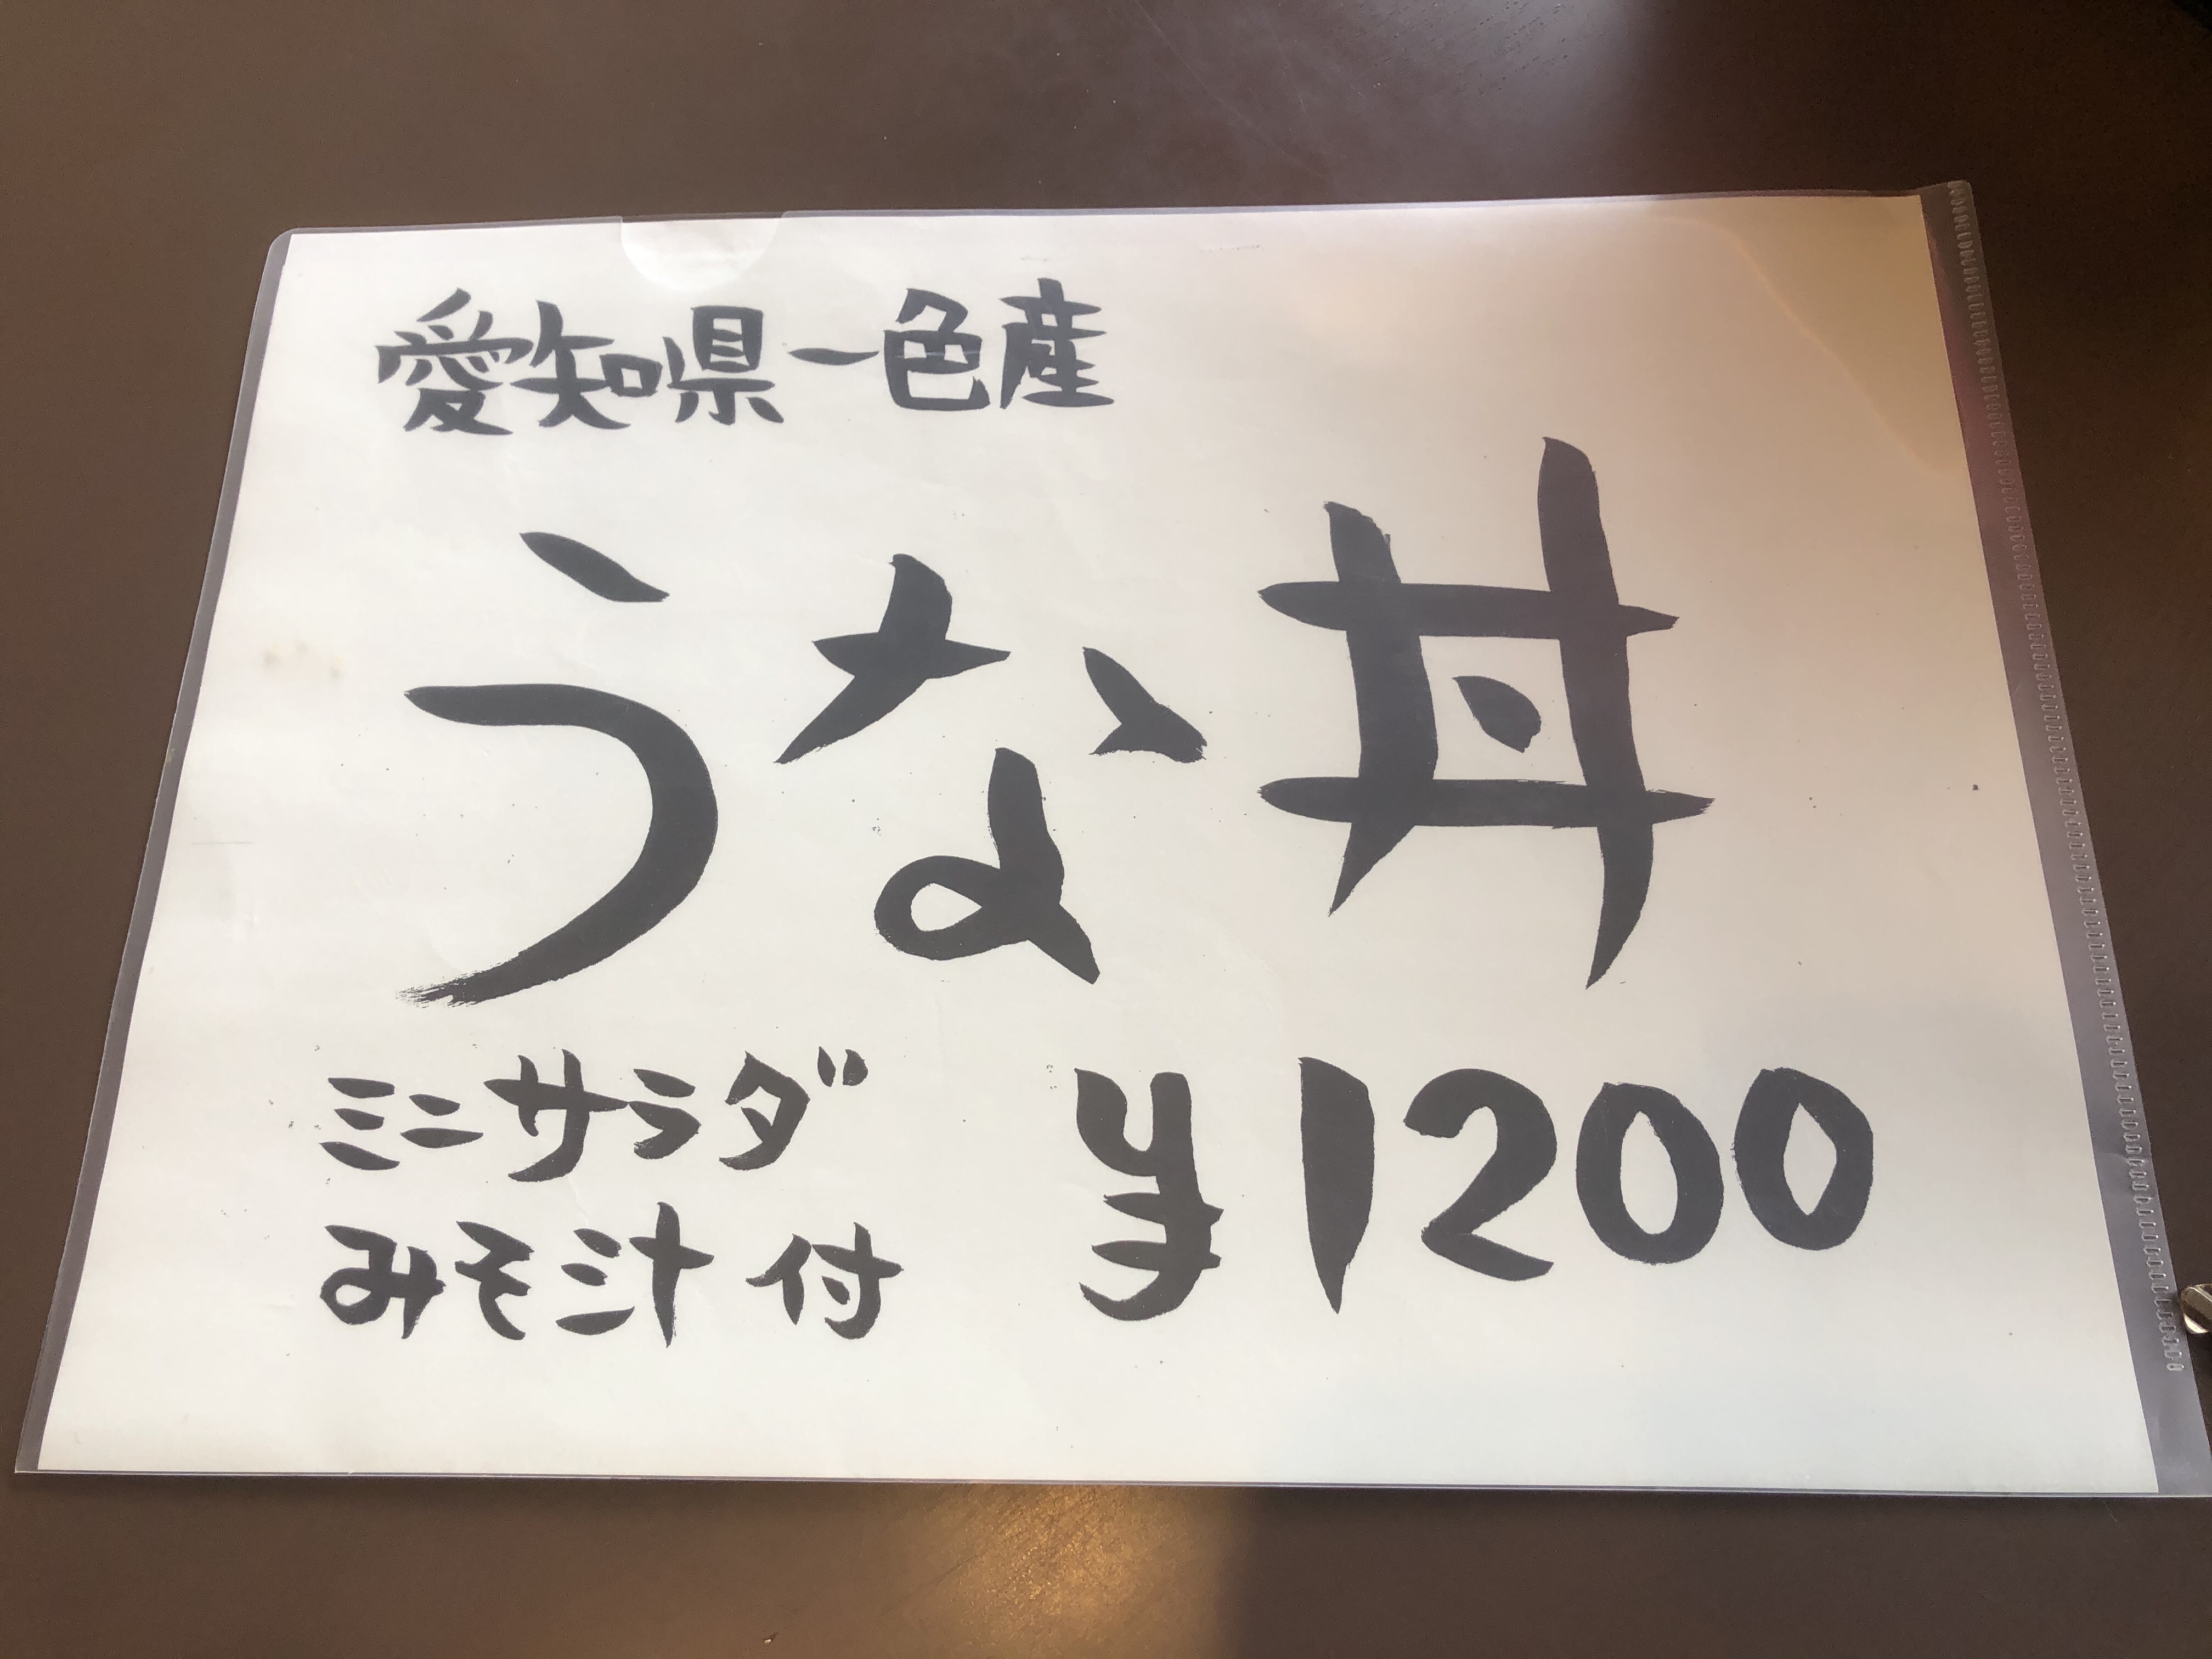 愛知県一色産
うな丼
ミニサラダ
みそ汁付 ¥1200